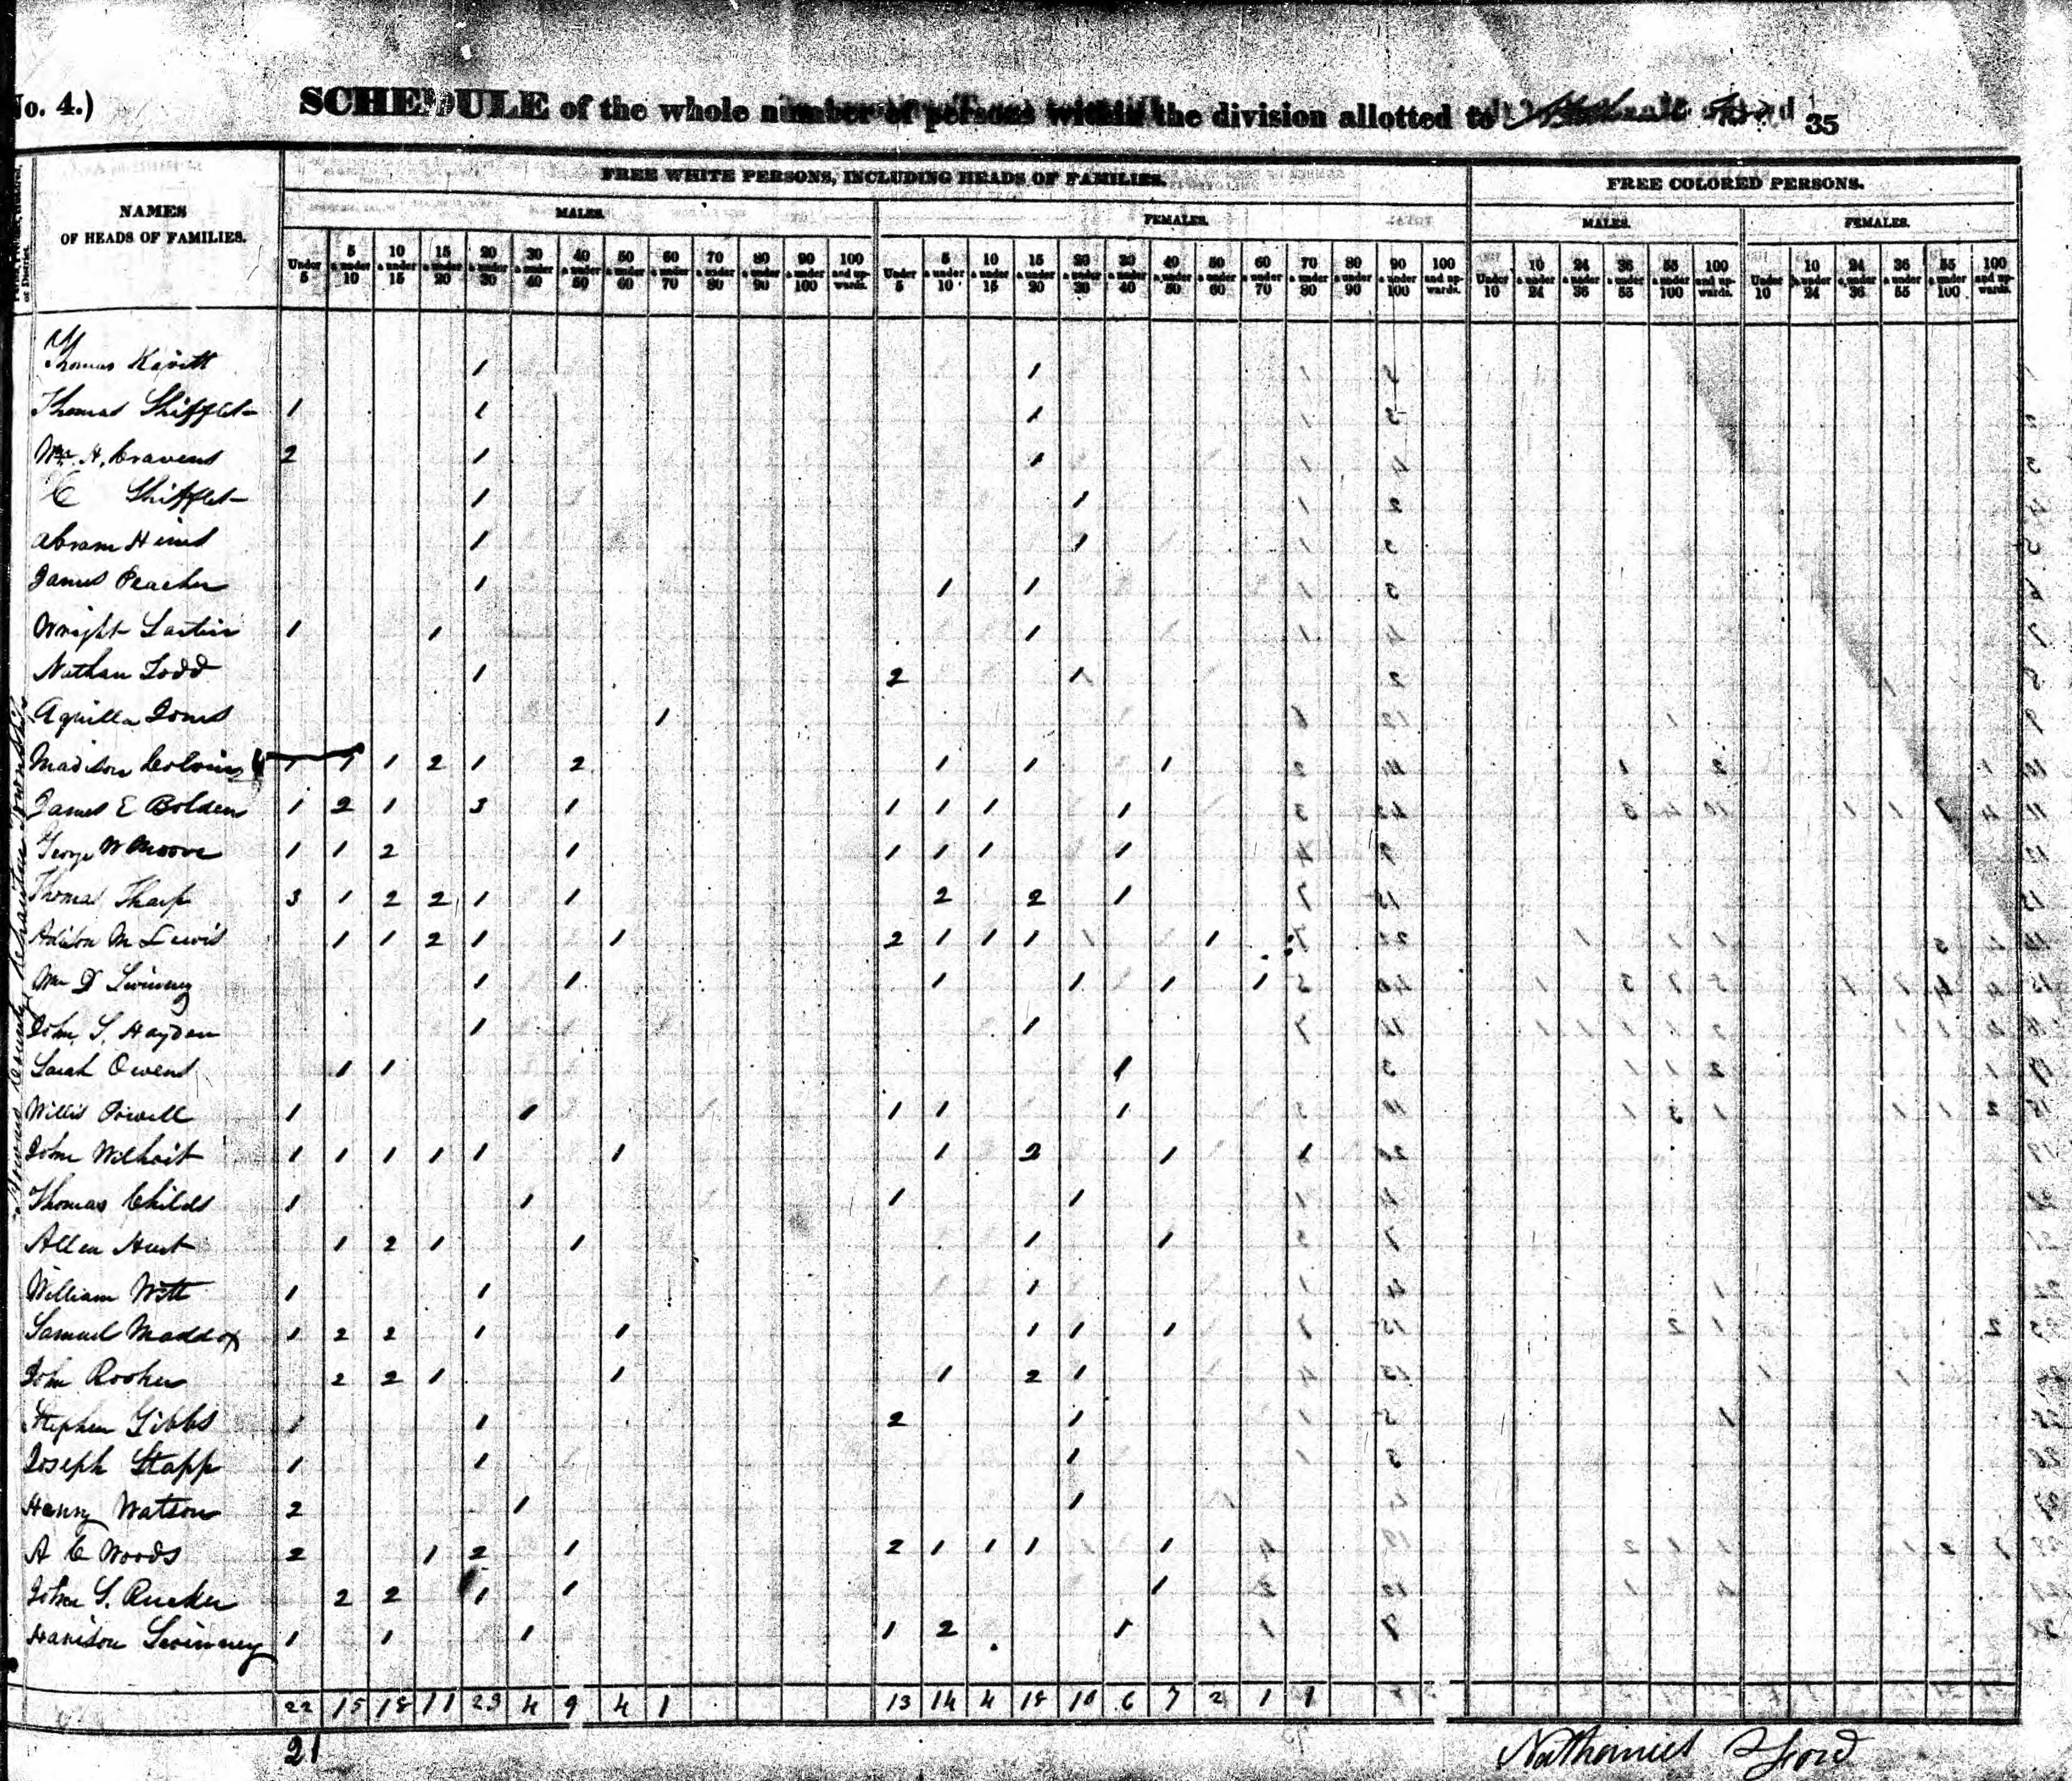 No. 4.)
SCHEDULE of the whole number of persons within the division allotted to
35
NAMES
OF HEADS OF FAMILIES.
FREE WHITE PERSONS, INCLUDING HEADS OF FAMILIES.
FREE COLORED PERSONS.
MALES.
FEMALES.
MALES.
FEMALES.
Under 5
5 & under 10
10 & under 15
15 & under 20
20 & under 30
30 & under 40
40 & under 50
50 & under 60
60 & under 70
70 & under 80
80 & under 90
90 & under 100
100 and upwards.
Under 5
5 & under 10
10 & under 15
15 & under 20
20 & under 30
30 & under 40
40 & under 50
50 & under 60
60 & under 70
70 & under 80
80 & under 90
90 & under 100
100 and upwards.
Under 10
10 & under 24
24 & under 36
36 & under 55
55 & under 100
100 and upwards.
Under 10
10 & under 24
24 & under 36
36 & under 55
55 & under 100
100 and upwards.
Thomas 1 1
Thomas Shifflet 1 1 1
Wm H. Cravens 2 1 1
C Shifflet 1 1
Abram 1 1
James Peacher 1 1 1
Wright 1 1 1
Nathan Todd 1 2 1
Aquilla Jones 1
Madison 1 1 1 2 1 2 1 1 1
James E Bolden 1 2 1 3 1 1 1 1 1
George W Moore 1 1 2 1 1 1 1 1
Thomas Tharp 3 1 2 2 1 1 2 2 1
Adison M Lewis 1 1 2 1 1 2 1 1 1 1
Wm D Swinney 1 1 1 1 1 1
John S. Hayden 1 1
Sarah Owens 1 1 1
Willis Powell 1 1 1 1 1
John Wilhoit 1 1 1 1 1 1 1 2 1 1
Thomas Childs 1 1 1 1
Allen Hurt 1 2 1 1 1 1
William Witt 1 1 1
Samuel Maddox 1 2 2 1 1 1 1 1
John Rooker 2 2 1 1 1 2 1
Stephen Gibbs 1 1 2 1
Joseph Stapp 1 1 1
Henry Watson 2 1 1
A C Woods 2 1 2 1 2 1 1 1 1
John S. Rucker 2 2 1 1 1
Harrison Swinney 1 1 1 1 2 1
22 15 18 11 23 4 9 4 1 13 14 4 18 10 6 7 2 1 1
21
Nathaniel Ford